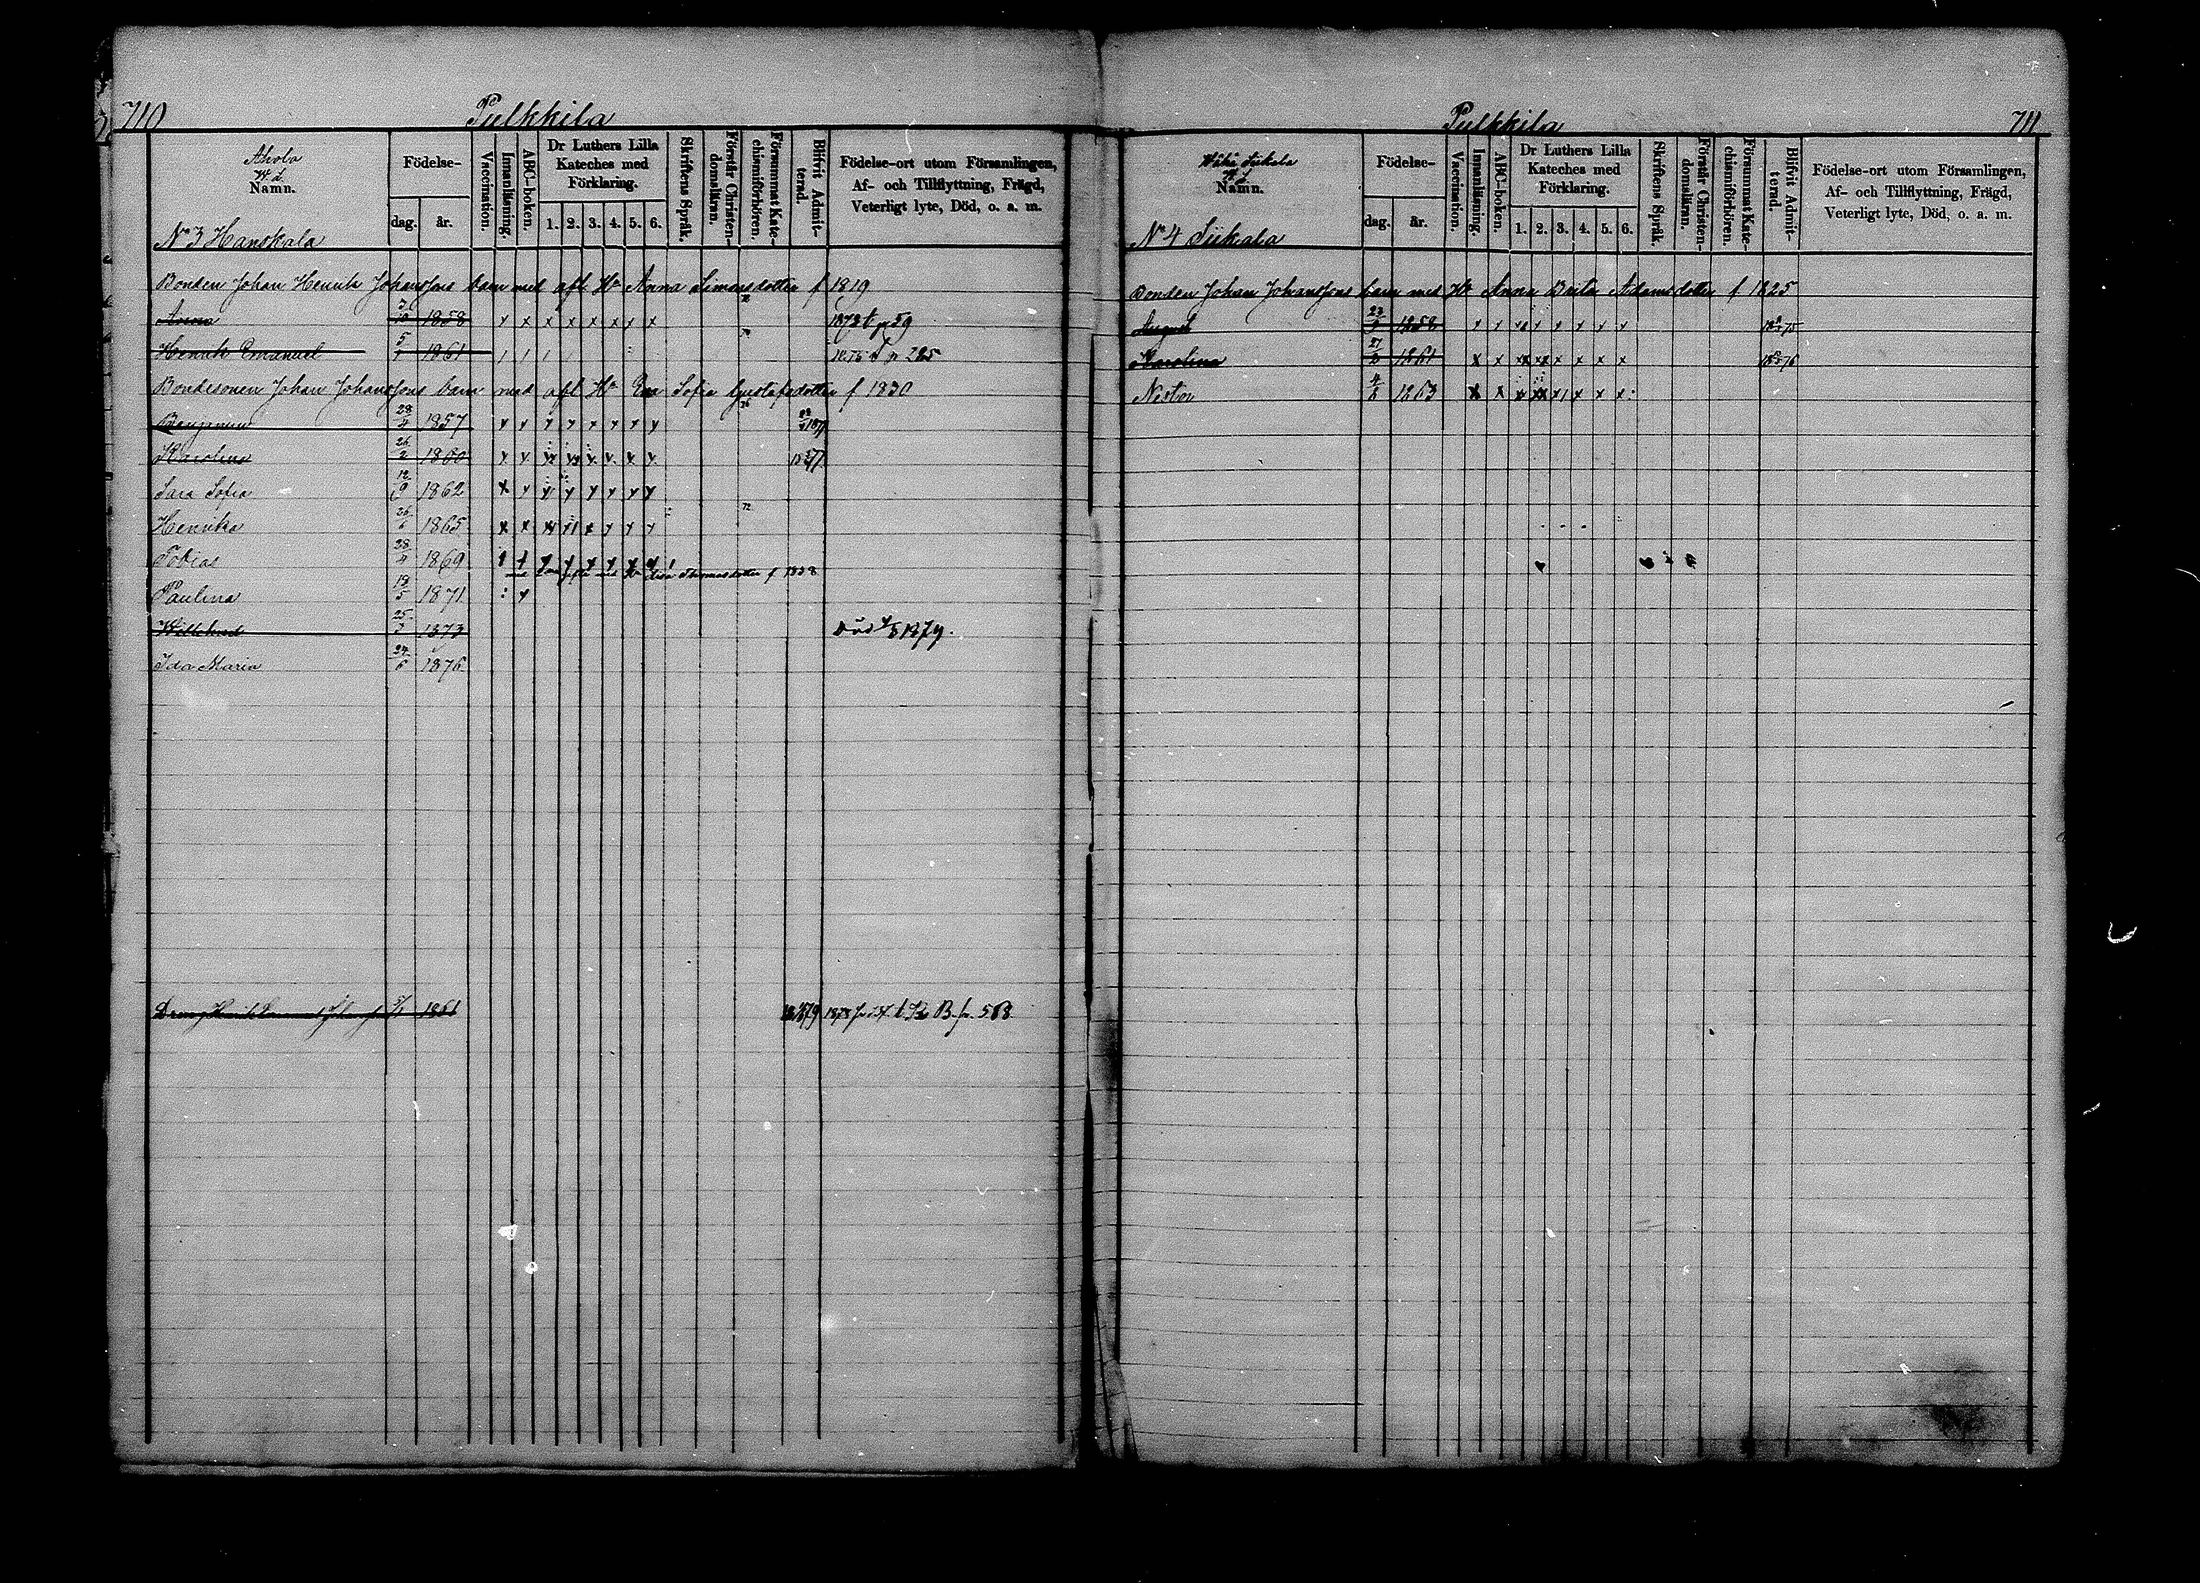 710
Pulkkila
Ahola
Namn.
Nº 3 Hanskala
Födelse-
dag.
år.
Vaccination.
Innanläsning.
ABC-boken.
Dr Luthers Lilla Kateches med Förklaring.
1. 2. 3. 4. 5. 6.
Skriftens Språk.
Förstår Christendomsläran.
Försummat Katechismiförhören.
Blifvit Admitterad.
Födelse-ort utom Församlingen, Af- och Tillflyttning, Frägd, Veterligt lyte, Död, o. a. m.
Bonden Johan Henrik Johanssons barn med afl. Hu Anna Simonsdotter f 1819
Anna 7/10 1858 x x x x x x x x 1873 p 59
Henrik Emanuel 5/1 1861 1 1 1 p 285
Bondesonen Johan Johanssons barn med afl Hu Eva Sofia Gustafsdotter f 1830
Benjamin 28/4 1857
Karolina 26/2 1860
Sara Sofia 12/9 1862
Henrika 26/6 1865
Tobias 28/4 1869
med Hu Thomasdotter f 1838
Paulina 1871
25 1873 Död 1879.
Ida Maria 24/6 1876
Dräng 5/1 1861 1878 B. p. 568
Pulkkila
711
Siikala
Namn.
Nº 4 Siikala
Födelse-
dag.
år.
Vaccination.
Innanläsning.
ABC-boken.
Dr Luthers Lilla Kateches med Förklaring.
1. 2. 3. 4. 5. 6.
Skriftens Språk.
Förstår Christendomsläran.
Försummat Katechismiförhören.
Blifvit Admitterad.
Födelse-ort utom Församlingen, Af- och Tillflyttning, Frägd, Veterligt lyte, Död, o. a. m.
Bonden Johan Johanssons barn med Hu Anna Brita Adamsdotter f 1825
August 1858
Karolina 1861
Nestor 1863